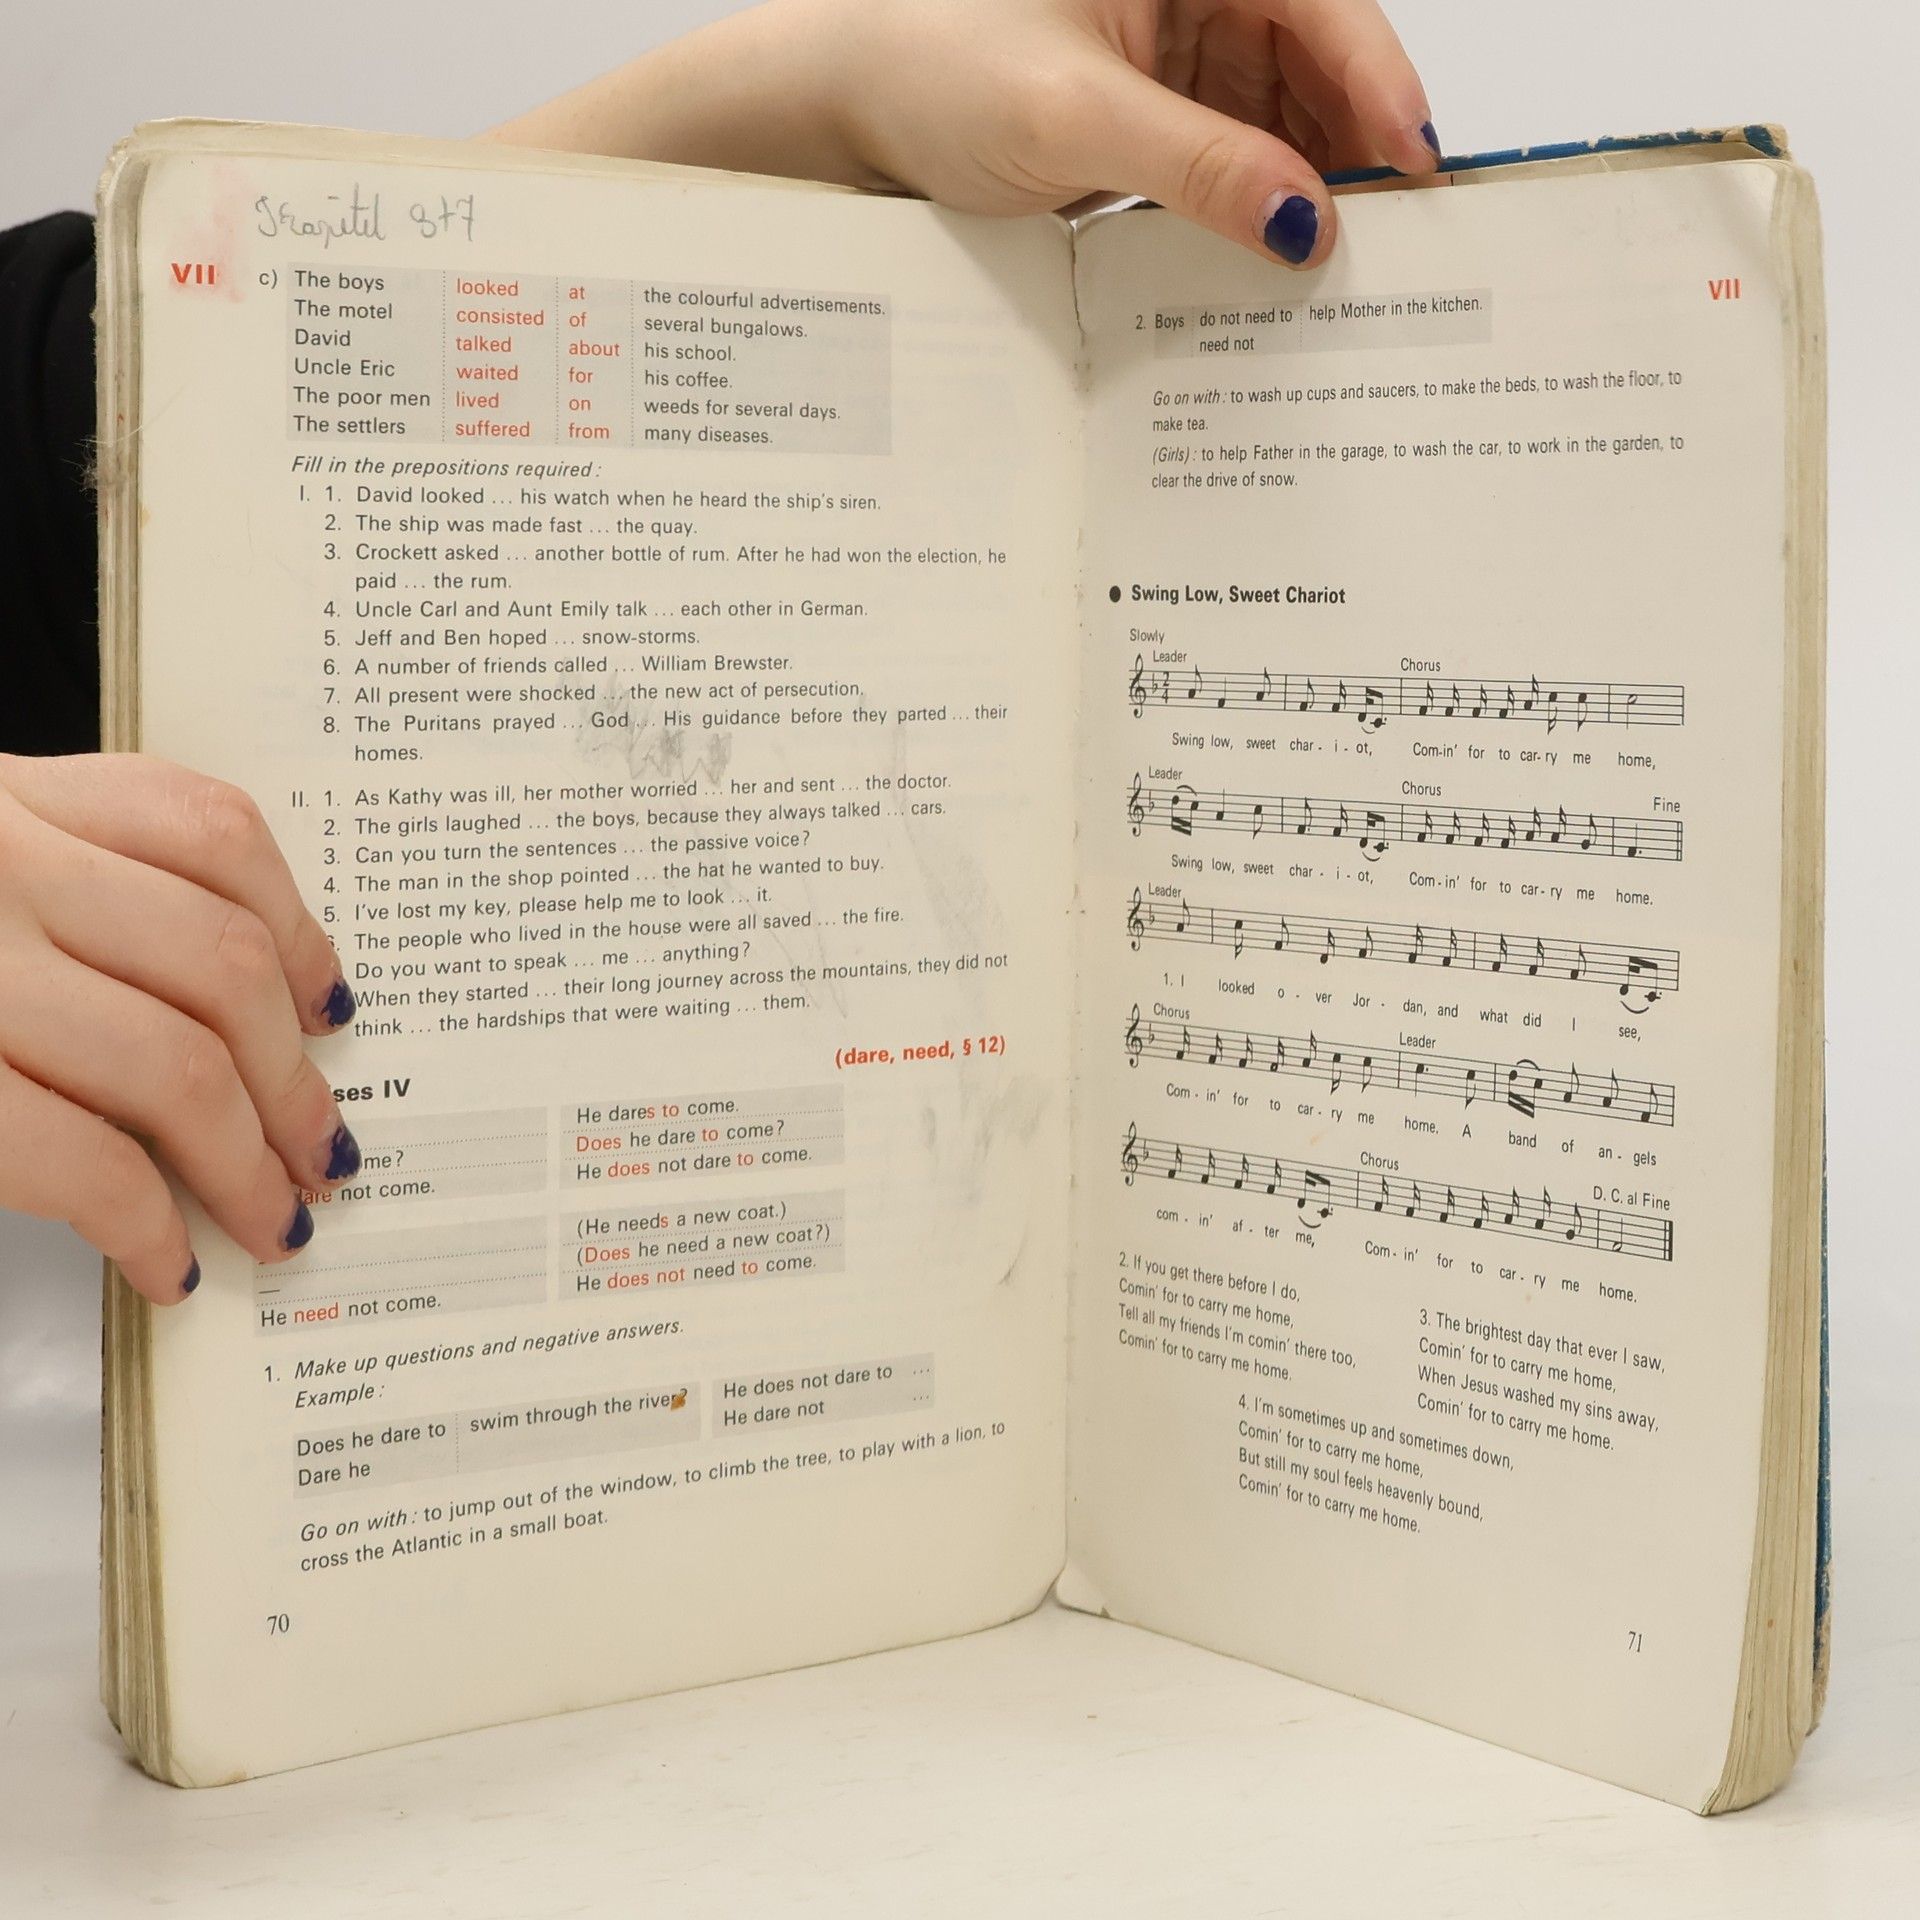 VII
c) The boys looked at the colourful advertisements.
The motel consisted of several bungalows.
David talked about his school.
Uncle Eric waited for his coffee.
The poor men lived on weeds for several days.
The settlers suffered from many diseases.
Fill in the prepositions required:
I. 1. David looked ... his watch when he heard the ship's siren.
2. The ship was made fast ... the quay.
3. Crockett asked ... another bottle of rum. After he had won the election, he
paid ... the rum.
4. Uncle Carl and Aunt Emily talk ... each other in German.
5. Jeff and Ben hoped ... snow-storms.
6. A number of friends called ... William Brewster.
7. All present were shocked ... the new act of persecution.
8. The Puritans prayed ... God ... His guidance before they parted ... their
homes.
II. 1. As Kathy was ill, her mother worried ... her and sent ... the doctor.
2. The girls laughed ... the boys, because they always talked ... cars.
3. Can you turn the sentences ... the passive voice?
4. The man in the shop pointed ... the hat he wanted to buy.
5. I've lost my key, please help me to look ... it.
The people who lived in the house were all saved ... the fire.
Do you want to speak ... me ... anything?
When they started ... their long journey across the mountains, they did not
think ... the hardships that were waiting ... them.
(dare, need, § 12)
ses IV
He dares to come.
me? Does he dare to come?
are not come. He does not dare to come.
(He needs a new coat.)
(Does he need a new coat?)
— He does not need to come.
He need not come.
1. Make up questions and negative answers.
Example:
Does he dare to swim through the river? He does not dare to ...
Dare he He dare not ...
Go on with: to jump out of the window, to climb the tree, to play with a lion, to
cross the Atlantic in a small boat.
70
VII
2. Boys do not need to help Mother in the kitchen.
need not
Go on with: to wash up cups and saucers, to make the beds, to wash the floor, to
make tea.
(Girls): to help Father in the garage, to wash the car, to work in the garden, to
clear the drive of snow.
● Swing Low, Sweet Chariot
Slowly
Leader Chorus
Swing low, sweet char - i - ot, Com-in' for to car-ry me home,
Leader Chorus Fine
Swing low, sweet char - i - ot, Com-in' for to car-ry me home.
Leader
1. I looked o - ver Jor - dan, and what did I see,
Chorus Leader
Com - in' for to car - ry me home. A band of an - gels
Chorus D. C. al Fine
com - in' af - ter me, Com - in' for to car - ry me home.
2. If you get there before I do,
Comin' for to carry me home,
Tell all my friends I'm comin' there too,
Comin' for to carry me home.
3. The brightest day that ever I saw,
Comin' for to carry me home,
When Jesus washed my sins away,
Comin' for to carry me home.
4. I'm sometimes up and sometimes down,
Comin' for to carry me home,
But still my soul feels heavenly bound,
Comin' for to carry me home.
71